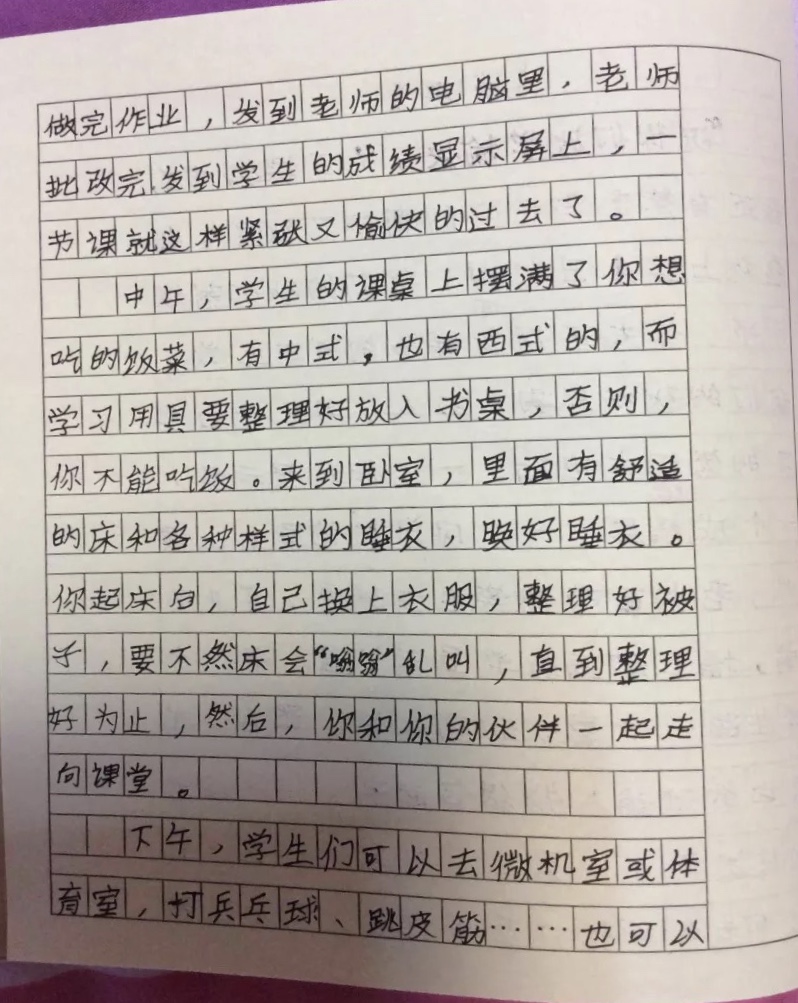 做完作业，发到老师的电脑里，老师
批改完发到学生的成绩显示屏上，一
节课就这样紧张又愉快的过去了。
中午，学生的课桌上摆满了你想
吃的饭菜，有中式，也有西式的，而
学习用具要整理好放入书桌，否则，
你不能吃饭。来到卧室，里面有舒适
的床和各种样式的睡衣，晚好睡衣。
你起床后，自己换上衣服，整理好被
子，要不然床会“嗡嗡”乱叫，直到整理
好为止，然后，你和你的伙伴一起走
向课堂。
下午，学生们可以去微机室或体
育室，打兵乓球、跳皮筋……也可以